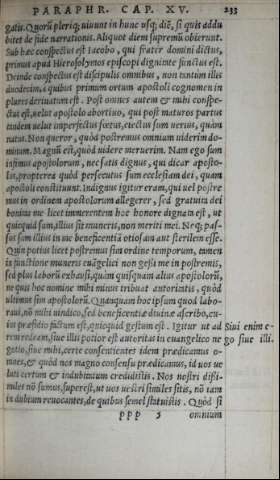 PARAPHR. CAP. XV. 233
gatis. Quorū pleriq; uiuunt in hunc usq; diē, si quis addu
bitet de side narrationis. Aliquot diem supremū obierunt.
Sub hæc conspectus est Iacobo, qui frater domini dictus,
primus apud Hierosolymos episcopi dignitate functus est.
Deinde conspectus est discipulis omnibus, non tantùm illis
duodecim, à quibus primum ortum apostoli cognomen in
plures deriuatum est. Post omnes autem & mihi conspe-
ctus est, uelut apostolo abortiuo, qui post maturos partus
itidem uelut imperfectus fœtus, eiectus sum uerius, quàm
natus. Non queror, quòd postremus omnium uiderim do-
minum. Magnū est, quòd uidere meruerim. Nam ego sum
infimus apostolorum, nec satis dignus, qui dicar aposto-
lus, propterea quòd persecutus sum ecclesiam dei, quam
apostoli constituunt. Indignus igitur eram, qui uel postre
mus in ordinem apostolorum allegerer, sed gratuita dei
bonitas me licet immerentem hoc honore dignata est, ut
quicquid sum, illius sit muneris, non meriti mei. Neq; pas-
sus sum illius in me beneficentiā otiosam aut sterilem esse.
Quin potius licet postremus sim ordine temporum, tamen
in functione muneris euāgelici non gesi me in postremis,
sed plus laboris exhausi, quàm quisquam alius apostolorū,
ne quis hoc nomine mihi minus tribuat autoritatis, quòd
ultimus sim apostolorū. Quanquam hoc ipsum quod labo-
raui, nō mihi uindico, sed beneficentiæ diuinæ ascribo, cu-
ius præsidio factum est, quicquid gestum est. Igitur ut ad
rem redeam, siue illis potior est autoritas in euangelico ne
gotio, siue mihi, certe consentientes idem prædicamus o-
mnes, & quòd nos magno consensu prædicamus, id uos ue
luti certum & indubitatum credidistis. Nos nostri dissi-
miles nō sumus, superest, ut uos uestri similes sitis, nō tam
in dubium reuocantes, de quibus semel statuistis. Quòd si
Siui enim e-
go siue illi.
ppp 5 omnium